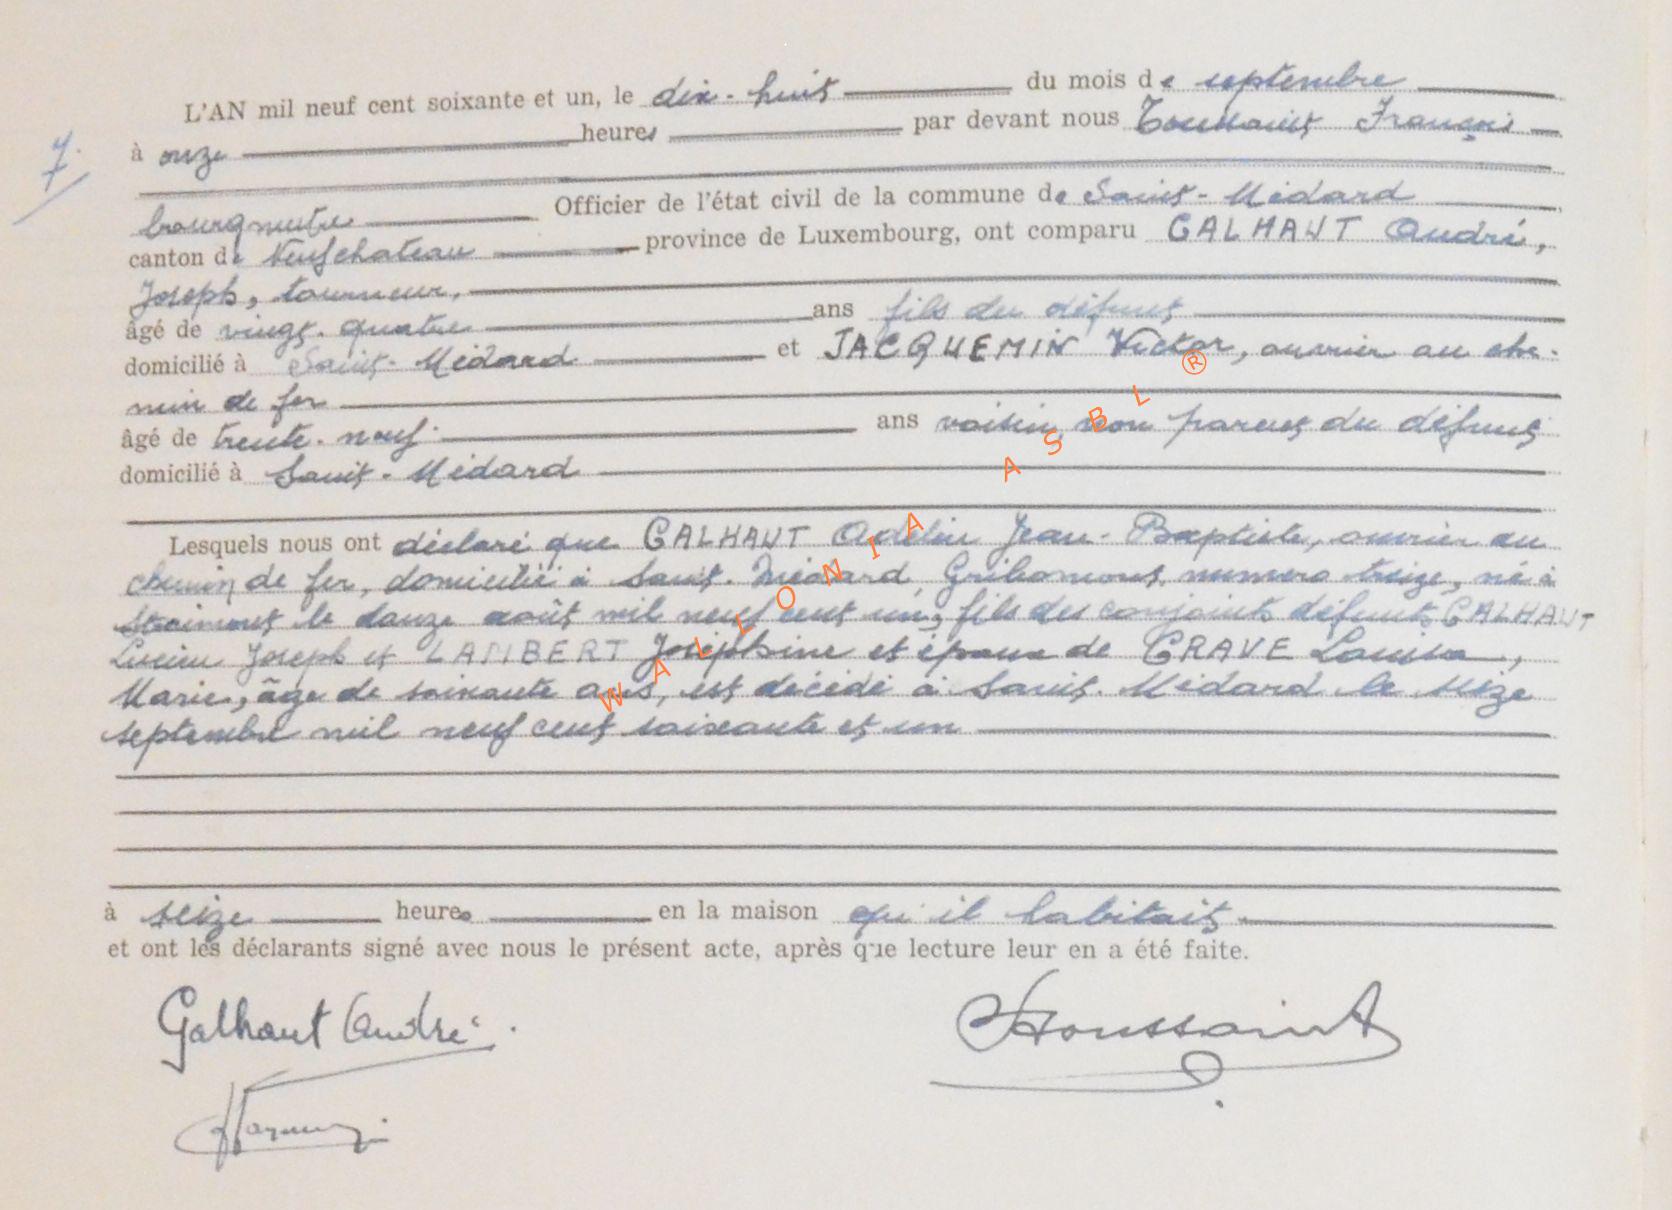 L'AN mil neuf cent soixante et un, le dix-huit du mois de septembre
7.
à onze heures par devant nous Toussaint François
bourgmestre Officier de l'état civil de la commune de Saint-Médard
canton de Neufchateau province de Luxembourg, ont comparu GALHAUT André,
Joseph, tourneur,
âgé de vingt-quatre ans fils du défunt
domicilié à Saint-Médard et JACQUEMIN Victor, ouvrier au che-
min de fer
âgé de trente-neuf ans voisin, non parent du défunt
domicilié à Saint-Médard
Lesquels nous ont déclaré que GALHAUT Adelin Jean-Baptiste, ouvrier au
chemin de fer, domicilié à Saint-Médard, Gribomont, numéro treize, né à
Straimont le douze août mil neuf cent un, fils des conjoints défunts GALHAUT
Lucien Joseph et LAMBERT Joséphine et époux de CRAVE Louisa,
Marie, âgé de soixante ans, est décédé à Saint-Médard le seize
septembre mil neuf cent soixante et un
à seize heures en la maison qu'il habitait.
et ont les déclarants signé avec nous le présent acte, après que lecture leur en a été faite.
Galhaut André.
Toussaint
WALLONIA ASBL ®